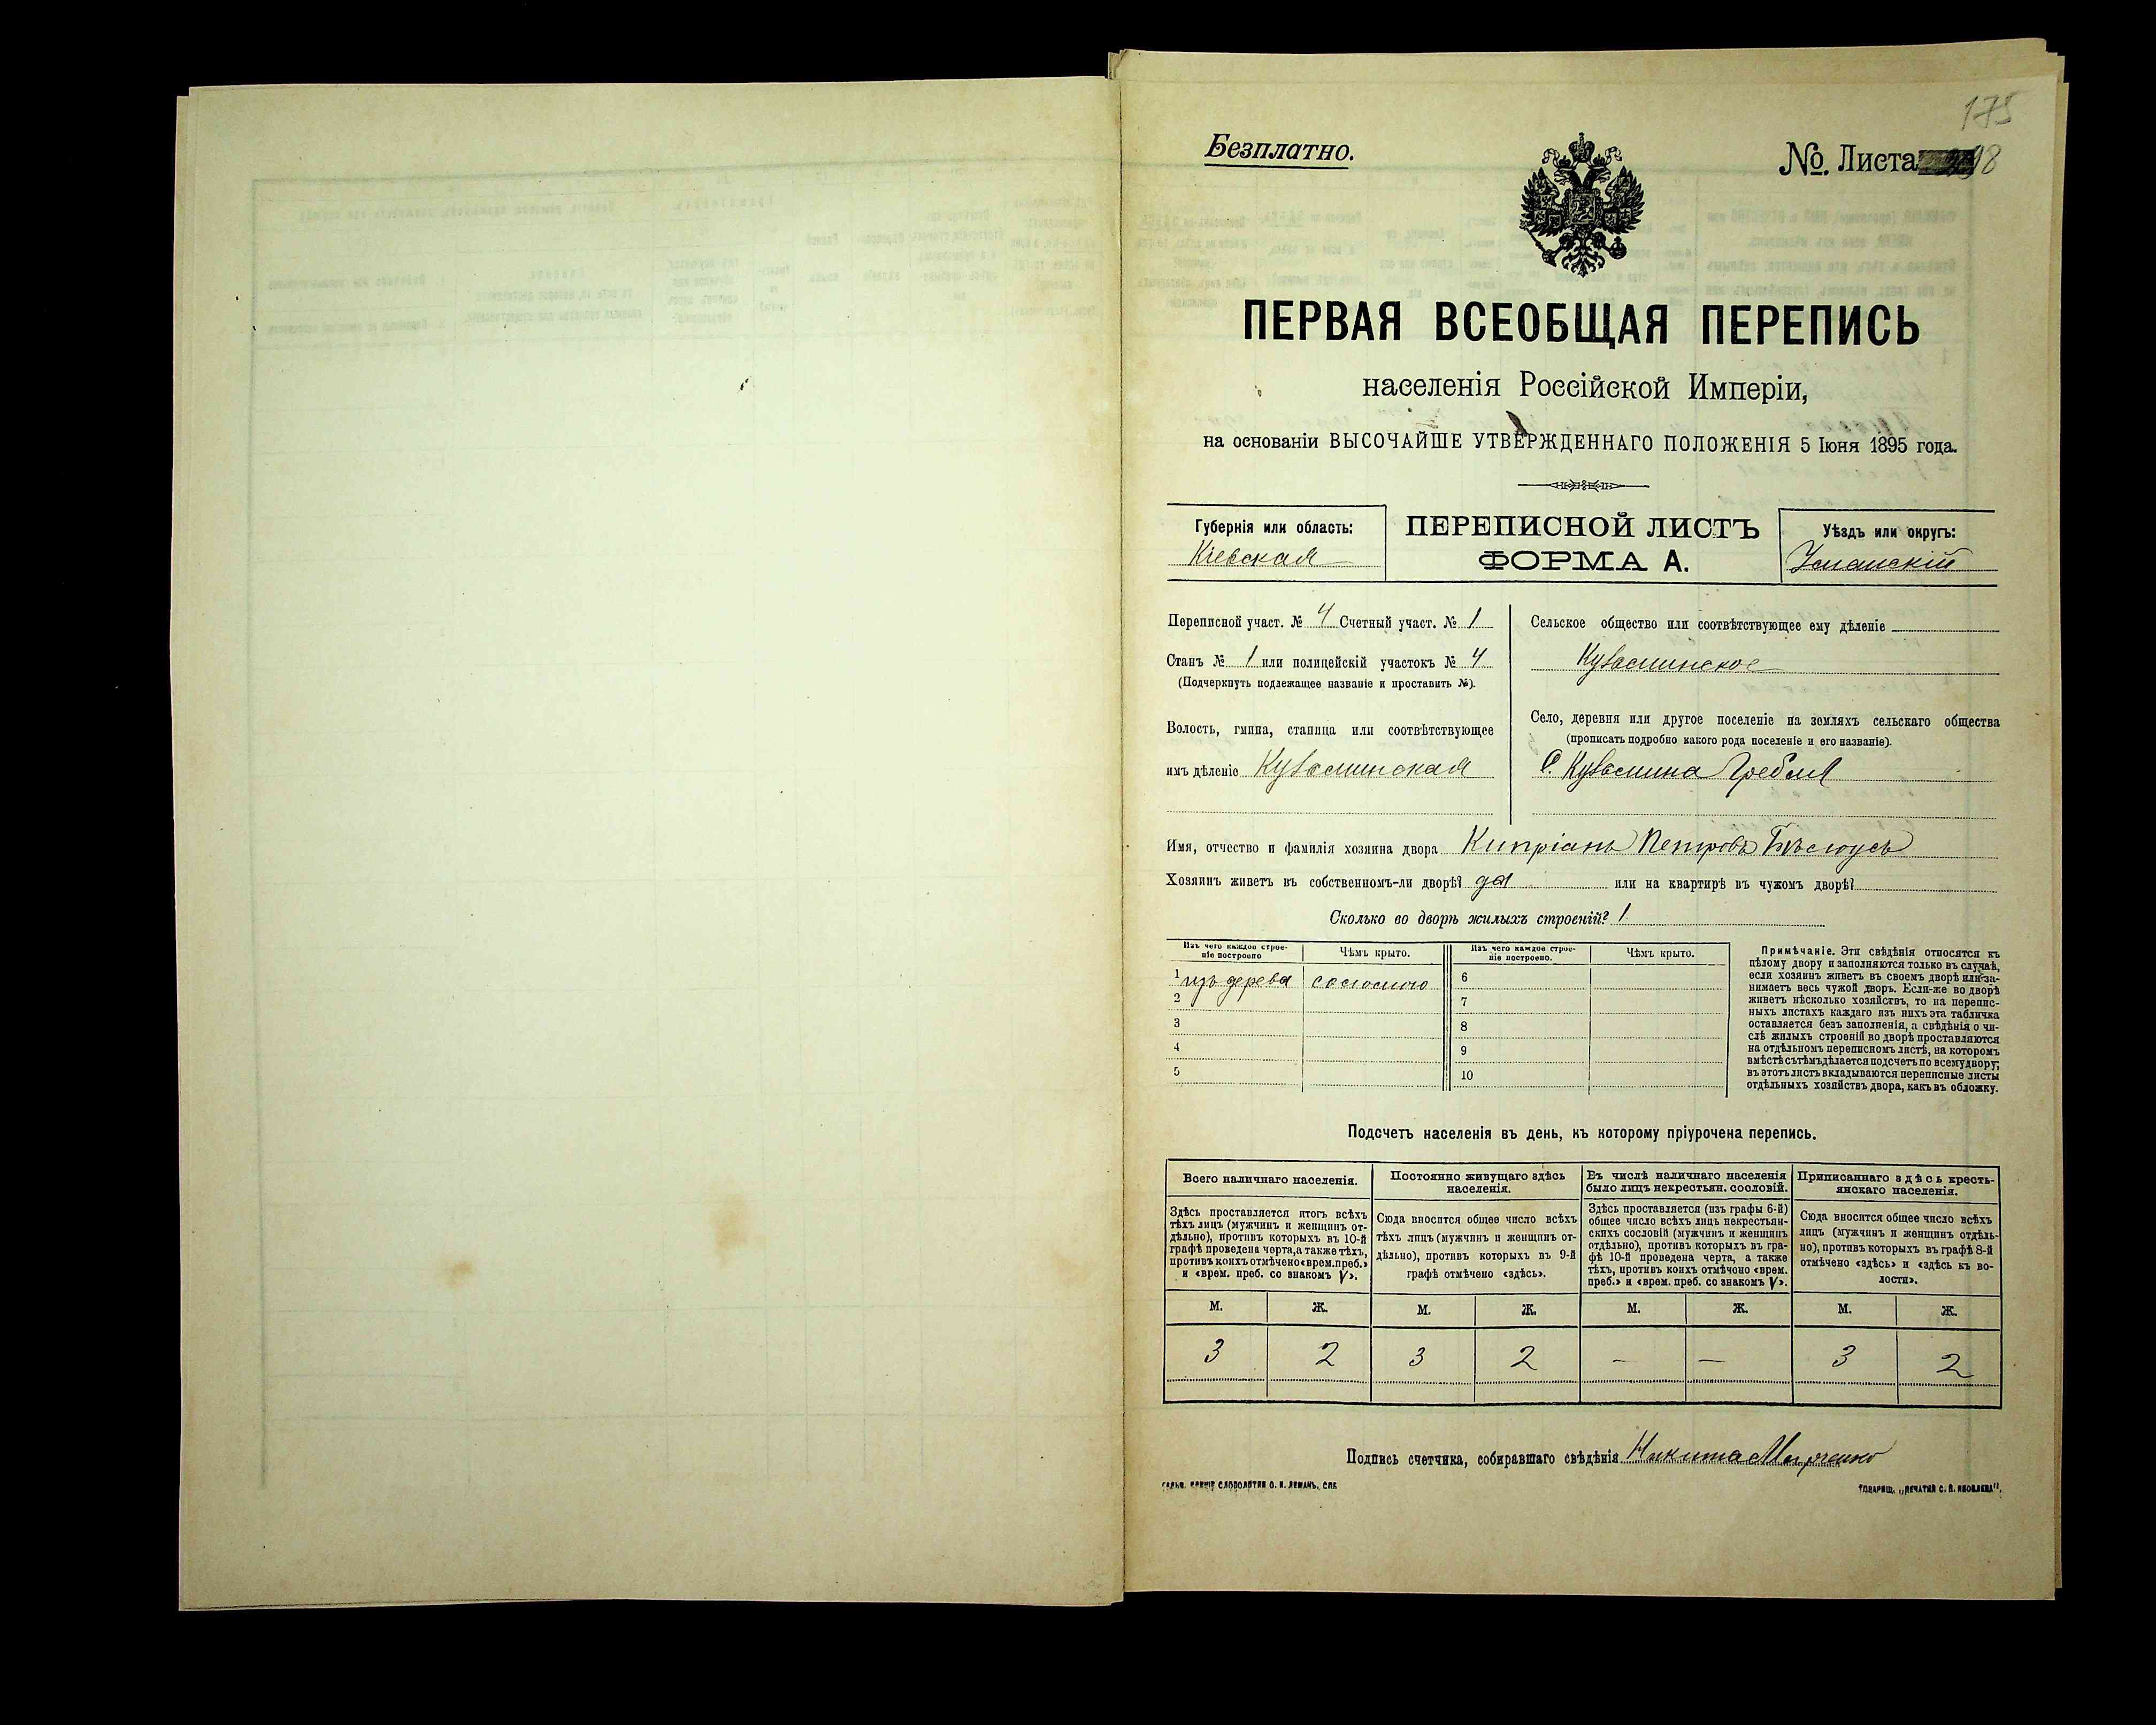 175
Безплатно.
№. Листа 98
ПЕРВАЯ ВСЕОБЩАЯ ПЕРЕПИСЬ
населенія Россійской Имперіи,
на основаніи ВЫСОЧАЙШЕ УТВЕРЖДЕННАГО ПОЛОЖЕНІЯ 5 Іюня 1895 года.
Губернія или область:
Кіевская
ПЕРЕПИСНОЙ ЛИСТЪ
ФОРМА А.
Уѣздъ или округъ:
Уманскій
Переписной участ. № 4 Счетный участ. № 1
Станъ № 1 или полицейскій участокъ № 4
(Подчеркнуть подлежащее названіе и проставить №).
Волость, гмина, станица или соотвѣтствующее
имъ дѣленіе Кузьминская
Сельское общество или соотвѣтствующее ему дѣленіе
Кузьминское
Село, деревня или другое поселеніе на земляхъ сельскаго общества
(прописать подробно какого рода поселеніе и его названіе).
С. Кузьмина Гребля
Имя, отчество и фамилія хозяина двора Кипріанъ Петровъ Бѣлоусъ
Хозяинъ живетъ въ собственномъ-ли дворѣ? да или на квартирѣ въ чужомъ дворѣ?
Сколько во дворѣ жилыхъ строеній? 1
Изъ чего каждое строе-
ніе построено
Чѣмъ крыто.
Изъ чего каждое строе-
ніе построено.
Чѣмъ крыто.
1 изъ дерева соломою 6
2 7
3 8
4 9
5 10
Примѣчаніе. Эти свѣдѣнія относятся къ
цѣлому двору и заполняются только въ случаѣ,
если хозяинъ живетъ въ своемъ дворѣ или за-
нимаетъ весь чужой дворъ. Если-же во дворѣ
живетъ нѣсколько хозяйствъ, то на перепис-
ныхъ листахъ каждаго изъ нихъ эта табличка
оставляется безъ заполненія, а свѣдѣнія о чи-
слѣ жилыхъ строеній во дворѣ проставляются
на отдѣльномъ переписномъ листѣ, на которомъ
вмѣстѣ съ тѣмъ дѣлается подсчетъ по всему двору;
въ этотъ листъ вкладываются переписные листы
отдѣльныхъ хозяйствъ двора, какъ въ обложку.
Подсчетъ населенія въ день, къ которому пріурочена перепись.
Всего наличнаго населенія.
Здѣсь проставляется итогъ всѣхъ
тѣхъ лицъ (мужчинъ и женщинъ от-
дѣльно), противъ которыхъ въ 10-й
графѣ проведена черта, а также тѣхъ,
противъ коихъ отмѣчено «врем. преб.»
и «врем. преб. со знакомъ V».
Постоянно живущаго здѣсь
населенія.
Сюда вносится общее число всѣхъ
тѣхъ лицъ (мужчинъ и женщинъ от-
дѣльно), противъ которыхъ въ 9-й
графѣ отмѣчено «здѣсь».
Въ числѣ наличнаго населенія
было лицъ некрестьян. сословій.
Здѣсь проставляется (изъ графы 6-й)
общее число всѣхъ лицъ некрестьян-
скихъ сословій (мужчинъ и женщинъ
отдѣльно), противъ которыхъ въ гра-
фѣ 10-й проведена черта, а также
тѣхъ, противъ коихъ отмѣчено «врем.
преб.» и «врем. преб. со знакомъ V».
Приписаннаго здѣсь кресть-
янскаго населенія.
Сюда вносится общее число всѣхъ
лицъ (мужчинъ и женщинъ отдѣль-
но), противъ которыхъ въ графѣ 8-й
отмѣчено «здѣсь» и «здѣсь къ во-
лости».
М. Ж. М. Ж. М. Ж. М. Ж.
3 2 3 2 — — 3 2
Подпись счетчика, собиравшаго свѣдѣнія Никита
СЛОВОЛИТНИ О. И. ЛЕМАНЪ, СПБ
ТОВАРИЩ. „ПЕЧАТНЯ С. П. ЯКОВЛЕВА".